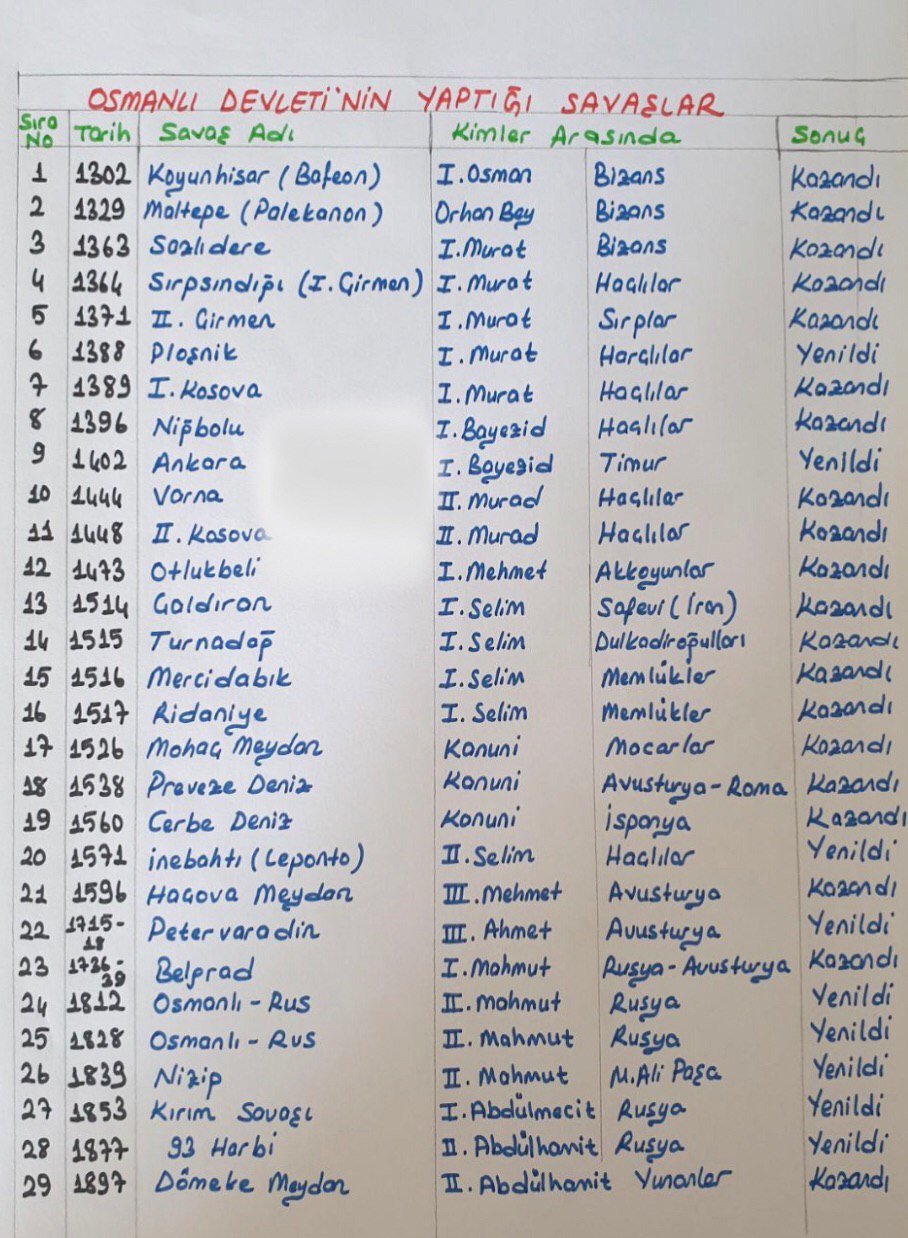 OSMANLI DEVLETİ'NİN YAPTIĞI SAVAŞLAR
Sıra No Tarih Savaş Adı Kimler Arasında Sonuç
1 1302 Koyunhisar (Bafeon) I. Osman Bizans Kazandı
2 1329 Maltepe (Palekanon) Orhan Bey Bizans Kazandı
3 1363 Sazlıdere I. Murat Bizans Kazandı
4 1364 Sırpsındığı (I. Çirmen) I. Murat Haçlılar Kazandı
5 1371 II. Çirmen I. Murat Sırplar Kazandı
6 1388 Ploşnik I. Murat Harçlılar Yenildi
7 1389 I. Kosova I. Murat Haçlılar Kazandı
8 1396 Niğbolu I. Bayezid Haçlılar Kazandı
9 1402 Ankara I. Bayezid Timur Yenildi
10 1444 Varna II. Murad Haçlılar Kazandı
11 1448 II. Kosova II. Murad Haçlılar Kazandı
12 1473 Otlukbeli I. Mehmet Akkoyunlar Kazandı
13 1514 Çaldıran I. Selim Safevi (İran) Kazandı
14 1515 Turnadağ I. Selim Dulkadiroğulları Kazandı
15 1516 Mercidabık I. Selim Memlükler Kazandı
16 1517 Ridaniye I. Selim Memlükler Kazandı
17 1526 Mohaç Meydan Kanuni Macarlar Kazandı
18 1538 Preveze Deniz Kanuni Avusturya-Roma Kazandı
19 1560 Cerbe Deniz Kanuni İspanya Kazandı
20 1571 İnebahtı (Leponto) II. Selim Haçlılar Yenildi
21 1596 Haçova Meydan III. Mehmet Avusturya Kazandı
22 1715-18 Petervaradin III. Ahmet Avusturya Yenildi
23 1736-39 Belgrad I. Mahmut Rusya-Avusturya Kazandı
24 1812 Osmanlı-Rus II. Mahmut Rusya Yenildi
25 1828 Osmanlı-Rus II. Mahmut Rusya Yenildi
26 1839 Nizip II. Mahmut M. Ali Paşa Yenildi
27 1853 Kırım Savaşı I. Abdülmecit Rusya Yenildi
28 1877 93 Harbi II. Abdülhamit Rusya Yenildi
29 1897 Dömeke Meydan II. Abdülhamit Yunanlar Kazandı